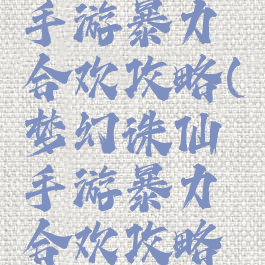 手游暴力
合欢攻略(
梦幻诛仙
手游暴力
合欢攻略